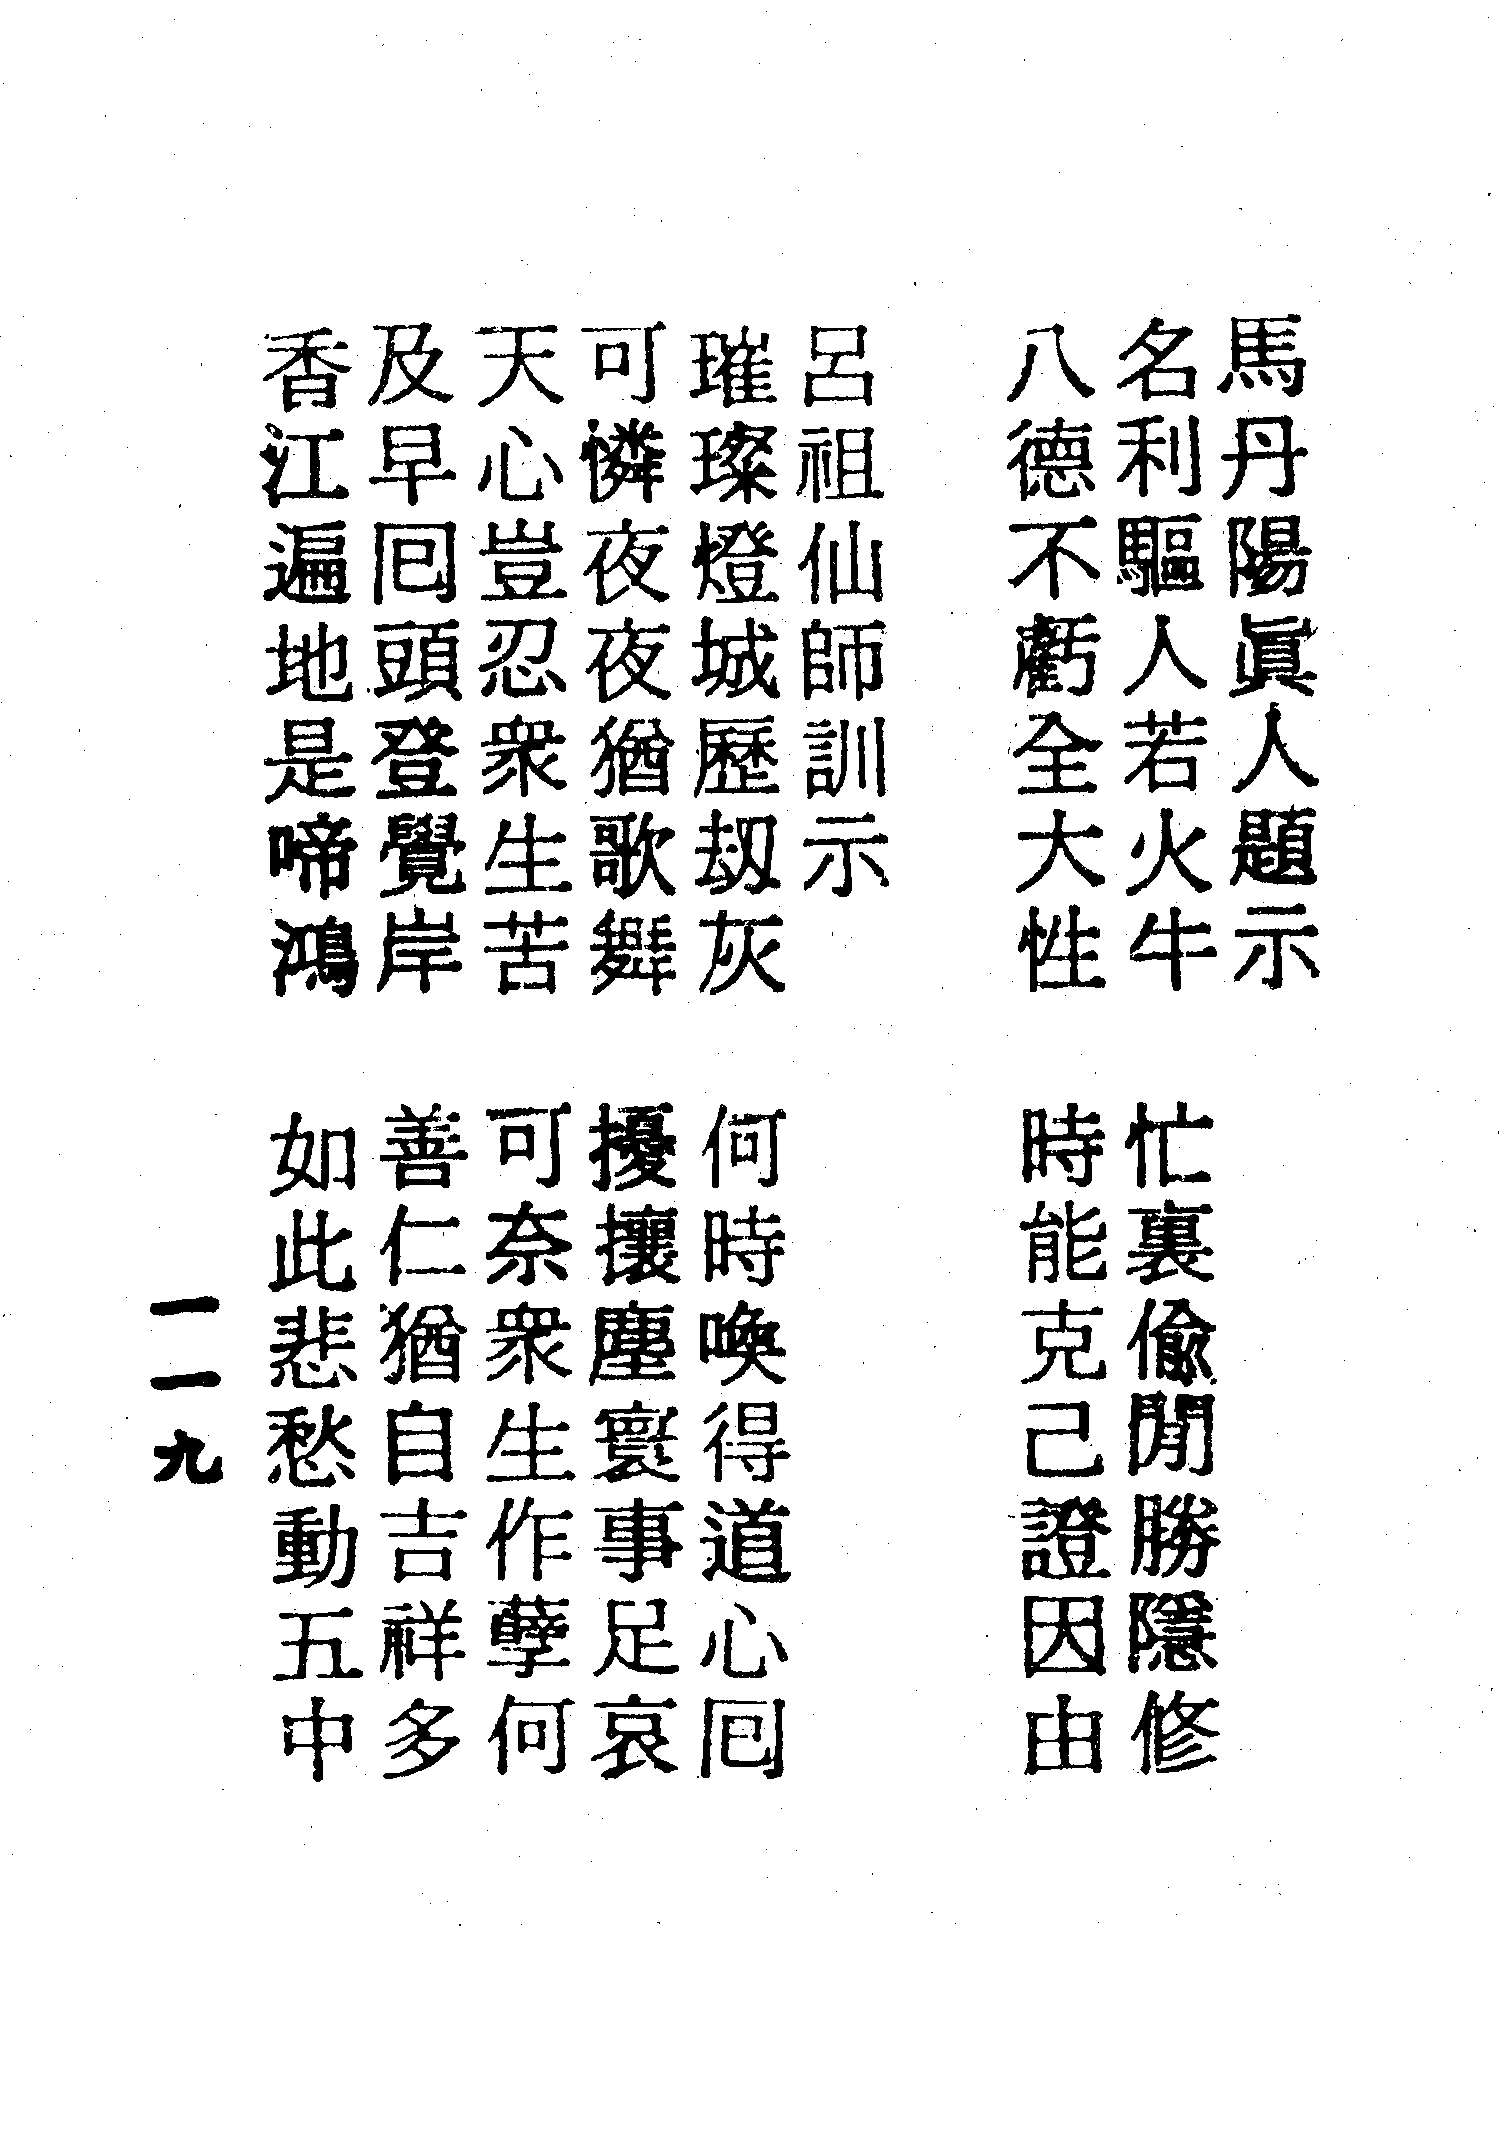 馬丹陽眞人題示
名利驅人若火牛　忙裏偷閒勝隱修
八德不虧全大性　時能克己證因由
呂祖仙師訓示
璀璨燈城歷刧灰　何時喚得道心囘
可憐夜夜猶歌舞　擾攘塵寰事足哀
天心豈忍衆生苦　可奈衆生作孽何
及早囘頭登覺岸　善仁猶自吉祥多
香江遍地是啼鴻　如此悲愁動五中
一一九